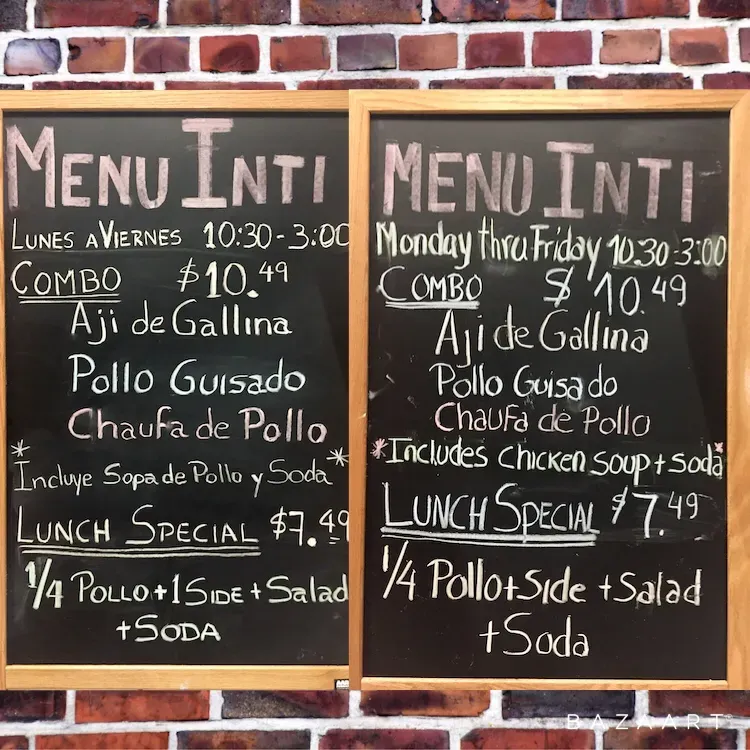 MENU INTI
LUNES A VIERNES 10:30-3:00
COMBO $10.49
Aji de Gallina
Pollo Guisado
Chaufa de Pollo
*Incluye Sopa de Pollo y Soda*
LUNCH SPECIAL $7.49
1/4 POLLO+1 SIDE+Salad
+SODA
MENU INTI
Monday thru Friday 10:30-3:00
COMBO $10.49
Aji de Gallina
Pollo Guisado
Chaufa de Pollo
*Includes Chicken Soup+Soda*
LUNCH SPECIAL $7.49
1/4 Pollo+Side+Salad
+Soda
BAZAART